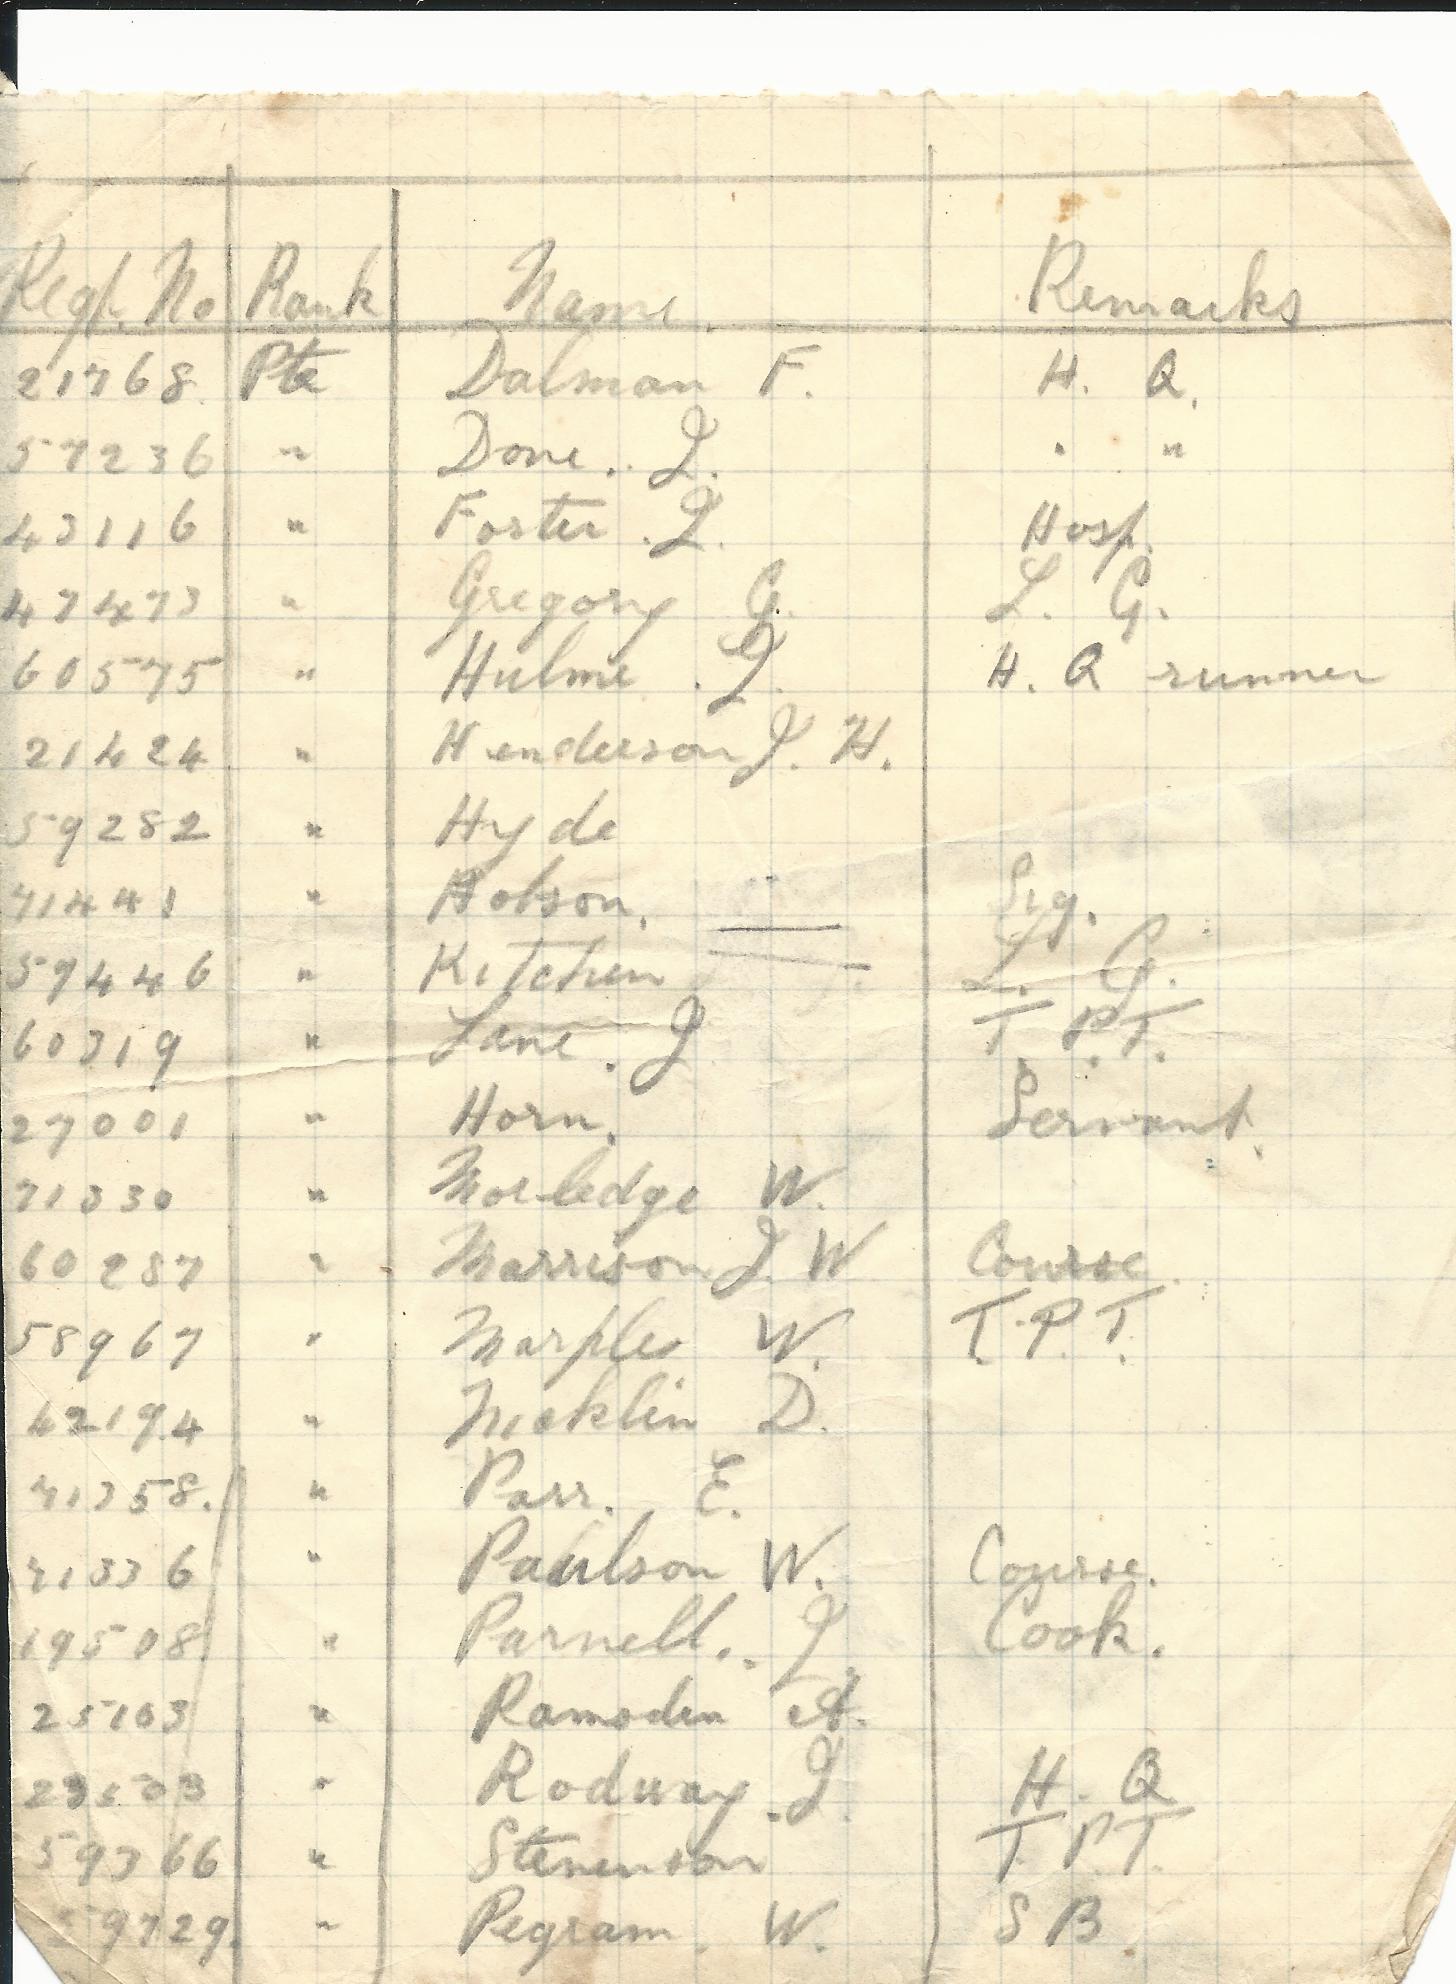 Regt. No Rank Name. Remarks
21768. Pte Dalman F. H. Q.
57236 " Done. J. " "
43116 " Foster. J. Hosp.
47473 " Gregory G. L. G.
60575 " Hulme. J. H. Q runner
21424 " Henderson J. H.
59282 " Hyde
71441 " Hobson. Sig.
59446 " Kitchen L. G.
60319 " Lane. J T. P. T.
27001 " Horn. Servant.
71330 " Morledge W.
60287 " Marrison J. W Course.
58967 " Marples W. T. P. T.
42194 " Micklin D.
71358. " Parr. E.
71336 " Paulson W. Course.
19508 " Parnell. J. Cook.
25103 " Ramsden A.
" Rodway. J. H. Q
59366 " Stevenson T. P. T.
59729. " Pegram. W. S B.